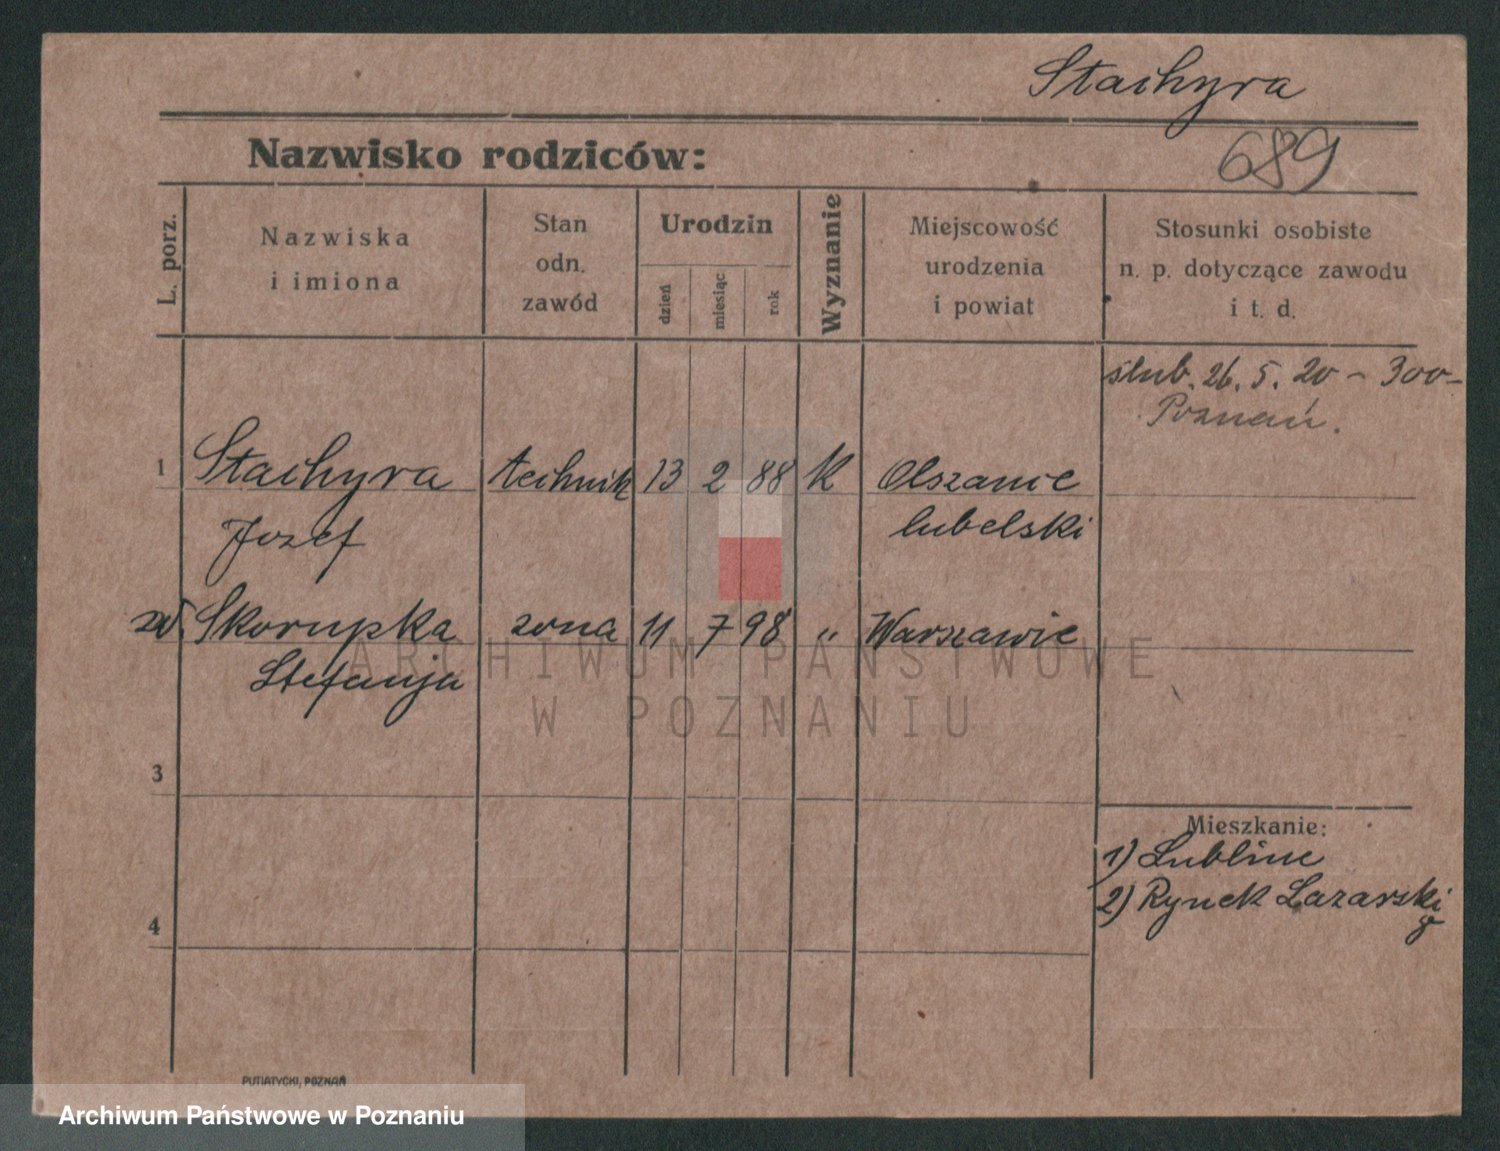 Stachyra
Nazwisko rodziców:
689
L. porz.
Nazwiska
i imiona
Stan
odn.
zawód
Urodzin
dzień
miesiąc
rok
Wyznanie
Miejscowość
urodzenia
i powiat
Stosunki osobiste
n. p. dotyczące zawodu
i t. d.
ślub. 26. 5. 20 – 300–
Poznań.
1 Stachyra technik 13 2 88 k Olszanie
Jozef lubelski
zd. Skorupka zona 11 7 98 " Warszawie
Stefanja
ARCHIWUM PAŃSTWOWE
W POZNANIU
3
Mieszkanie:
1) Lubline
2) Rynek Lazarski
4
PUTIATYCKI, POZNAŃ
Archiwum Państwowe w Poznaniu